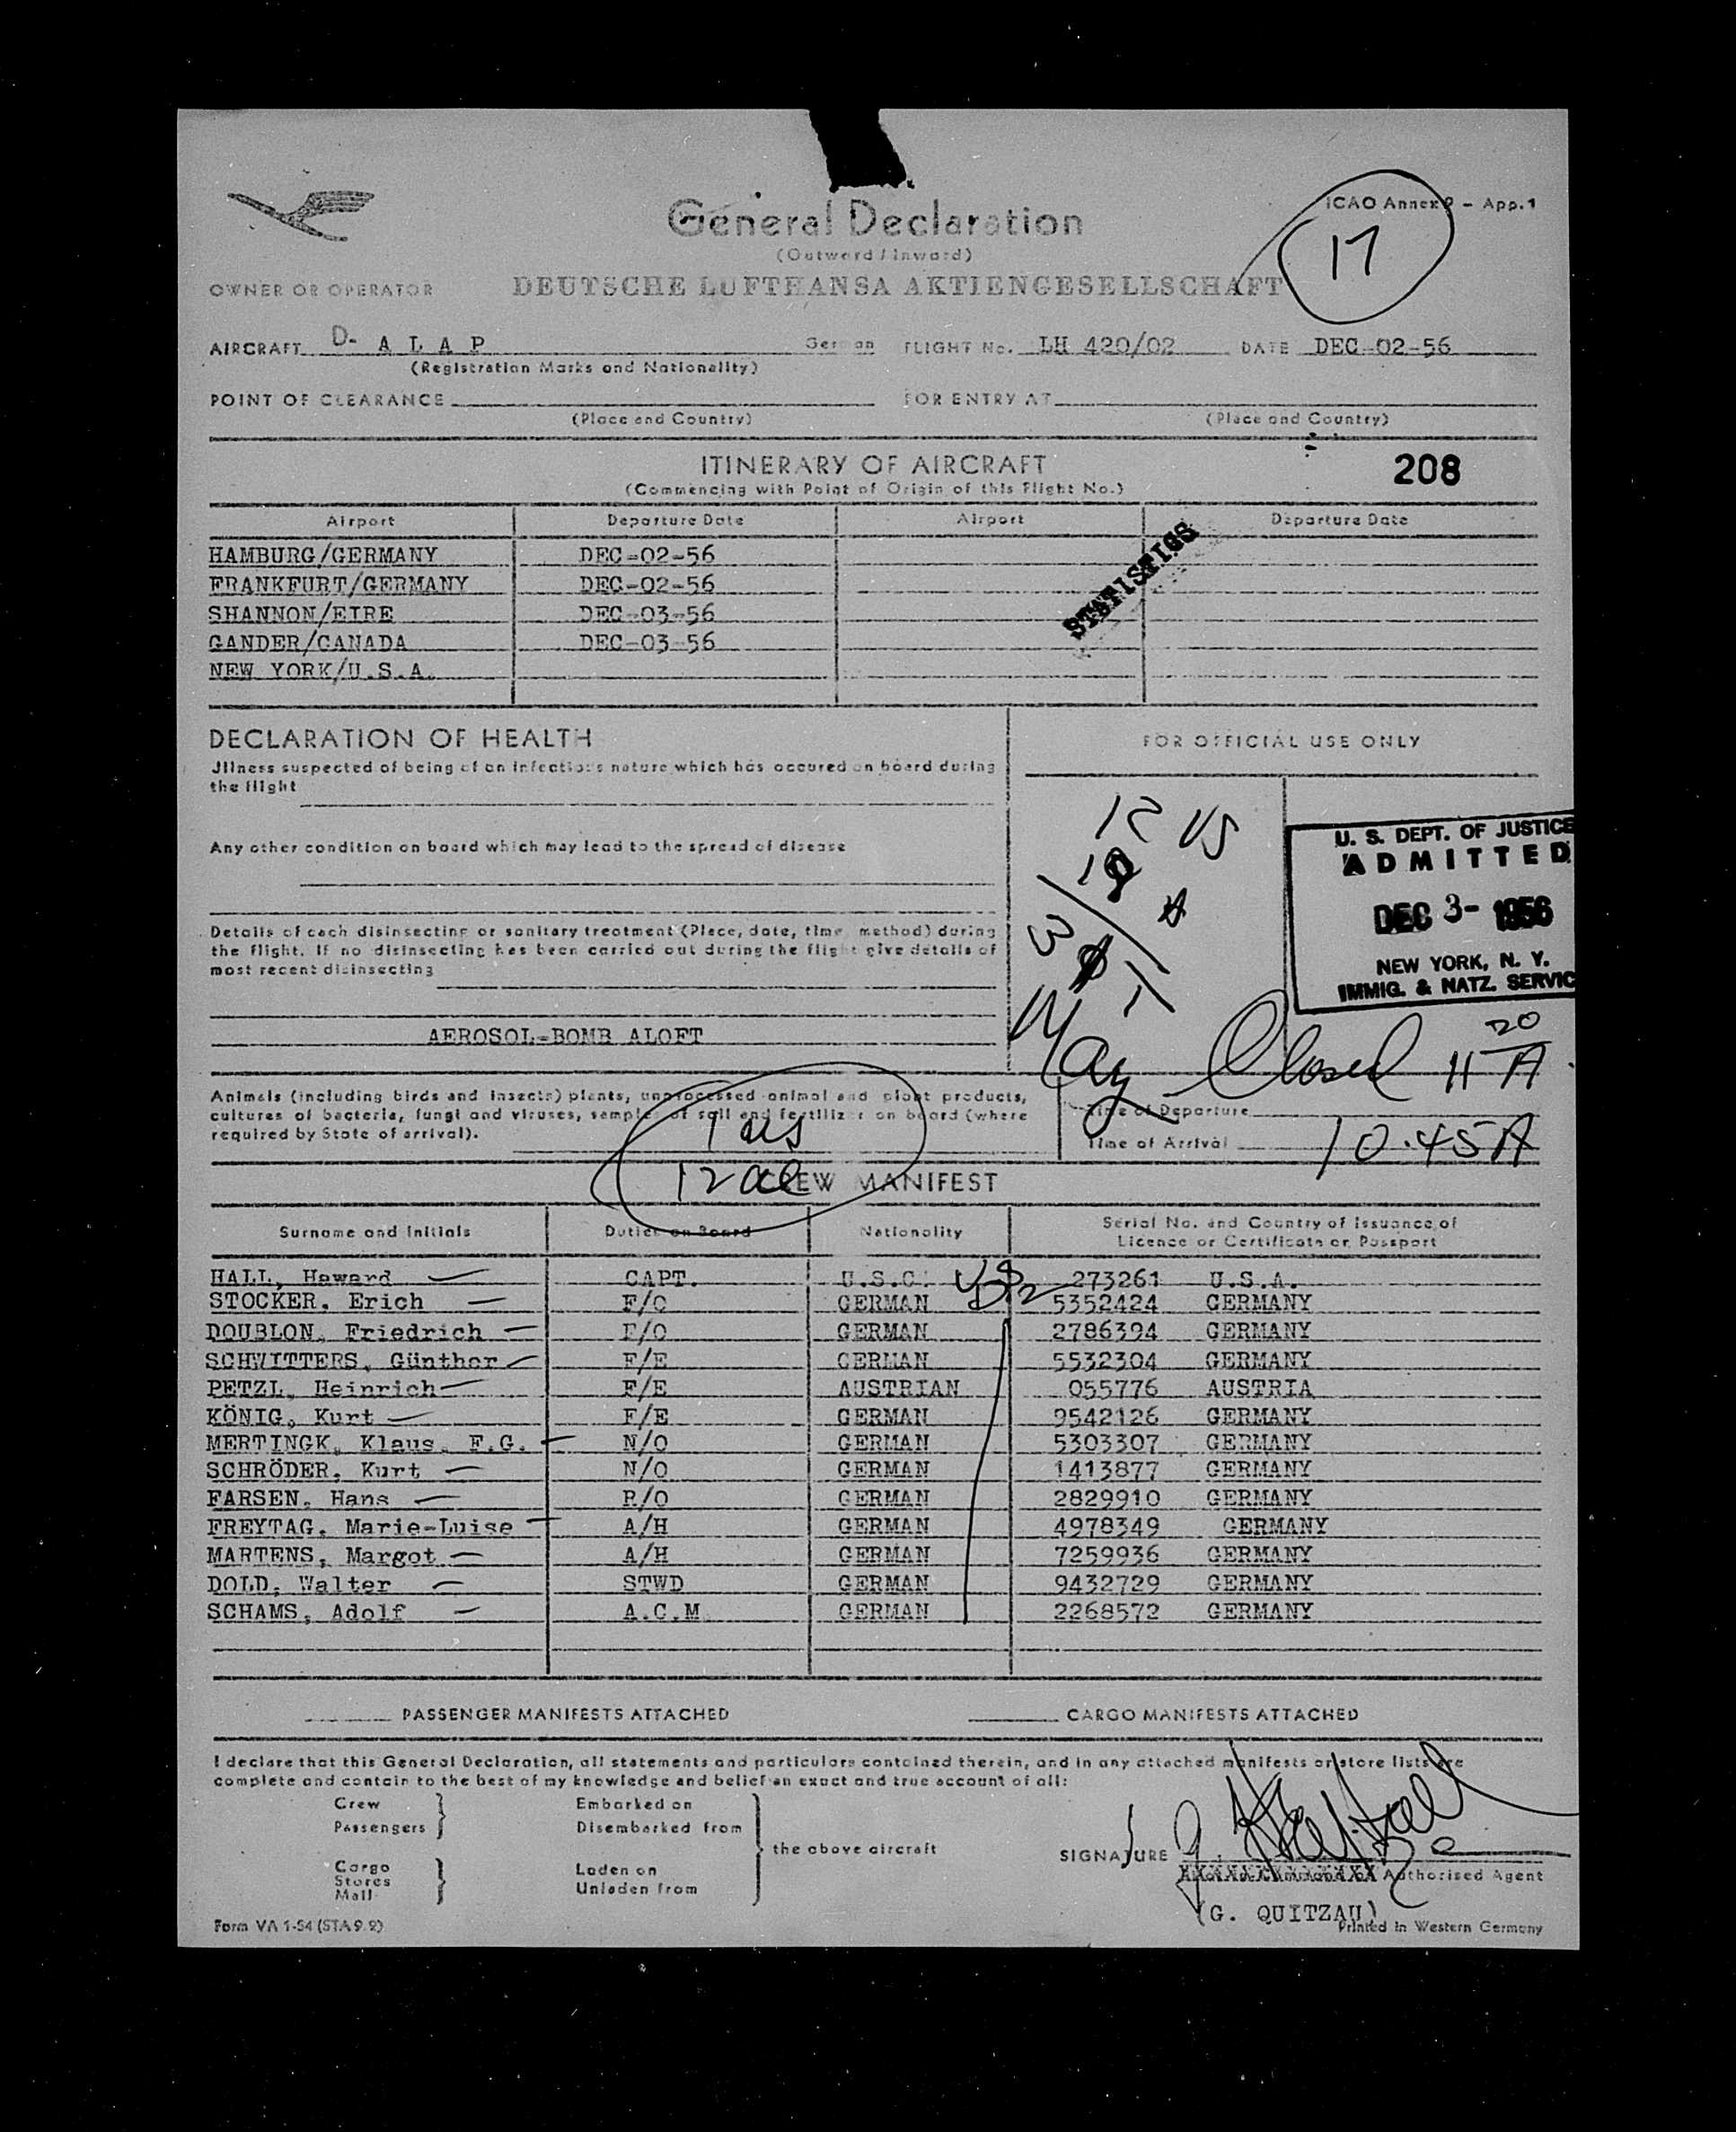 General Declaration
(Outward / Inward)
ICAO Annex 9 – App.1
17
OWNER OR OPERATOR DEUTSCHE LUFTHANSA AKTIENGESELLSCHAFT
AIRCRAFT D- A L A P German FLIGHT No. LH 420/02 DATE DEC-02-56
(Registration Marks and Nationality)
POINT OF CLEARANCE FOR ENTRY AT
(Place and Country) (Place and Country)
ITINERARY OF AIRCRAFT
208
(Commencing with Point of Origin of this Flight No.)
Airport Departure Date Airport Departure Date
HAMBURG/GERMANY DEC-02-56
FRANKFURT/GERMANY DEC-02-56
SHANNON/EIRE DEC-03-56
GANDER/CANADA DEC-03-56
NEW YORK/U.S.A.
STATISTICS
DECLARATION OF HEALTH
Jllness suspected of being of an infectious nature which has occured on board during
the flight
Any other condition on board which may lead to the spread of disease
Details of each disinsecting or sanitary treatment (Place, date, time, method) during
the flight. If no disinsecting has been carried out during the flight give details of
most recent disinsecting
AEROSOL-BOMB ALOFT
FOR OFFICIAL USE ONLY
12 US
U. S. DEPT. OF JUSTICE
ADMITTED
DEC 3- 1956
NEW YORK, N. Y.
IMMIG. & NATZ. SERVIC
May Closed 11 20 A
Animals (including birds and insects) plants, unprocessed animal and plant products,
cultures of bacteria, fungi and viruses, sample of soil and fertilizer on board (where
required by State of arrival).
Time of Departure
Time of Arrival 10.45 A
1 us
12 al
CREW MANIFEST
Surname and Initials Duties on Board Nationality Serial No. and Country of Issuance of
Licence or Certificate or Passport
HALL, Haward CAPT. U.S.C. 273261 U.S.A.
STOCKER, Erich F/O GERMAN 5352424 GERMANY
DOUBLON, Friedrich F/O GERMAN 2786394 GERMANY
SCHWITTERS, Günther F/E GERMAN 5532304 GERMANY
PETZL, Heinrich F/E AUSTRIAN 055776 AUSTRIA
KÖNIG, Kurt F/E GERMAN 9542126 GERMANY
MERTINGK, Klaus F.G. N/O GERMAN 5303307 GERMANY
SCHRÖDER, Kurt N/O GERMAN 1413877 GERMANY
FARSEN, Hans R/O GERMAN 2829910 GERMANY
FREYTAG, Marie-Luise A/H GERMAN 4978349 GERMANY
MARTENS, Margot A/H GERMAN 7259936 GERMANY
DOLD, Walter STWD GERMAN 9432729 GERMANY
SCHAMS, Adolf A.C.M GERMAN 2268572 GERMANY
PASSENGER MANIFESTS ATTACHED CARGO MANIFESTS ATTACHED
I declare that this General Declaration, all statements and particulars contained therein, and in any attached manifests or store lists are
complete and contain to the best of my knowledge and belief an exact and true account of all:
Crew Embarked on
Passengers Disembarked from
the above aircraft
Cargo Laden on
Stores
Mail Unladen from
SIGNATURE
Authorised Agent
(G. QUITZAU)
Form VA 1-54 (STA 9.2) Printed in Western Germany